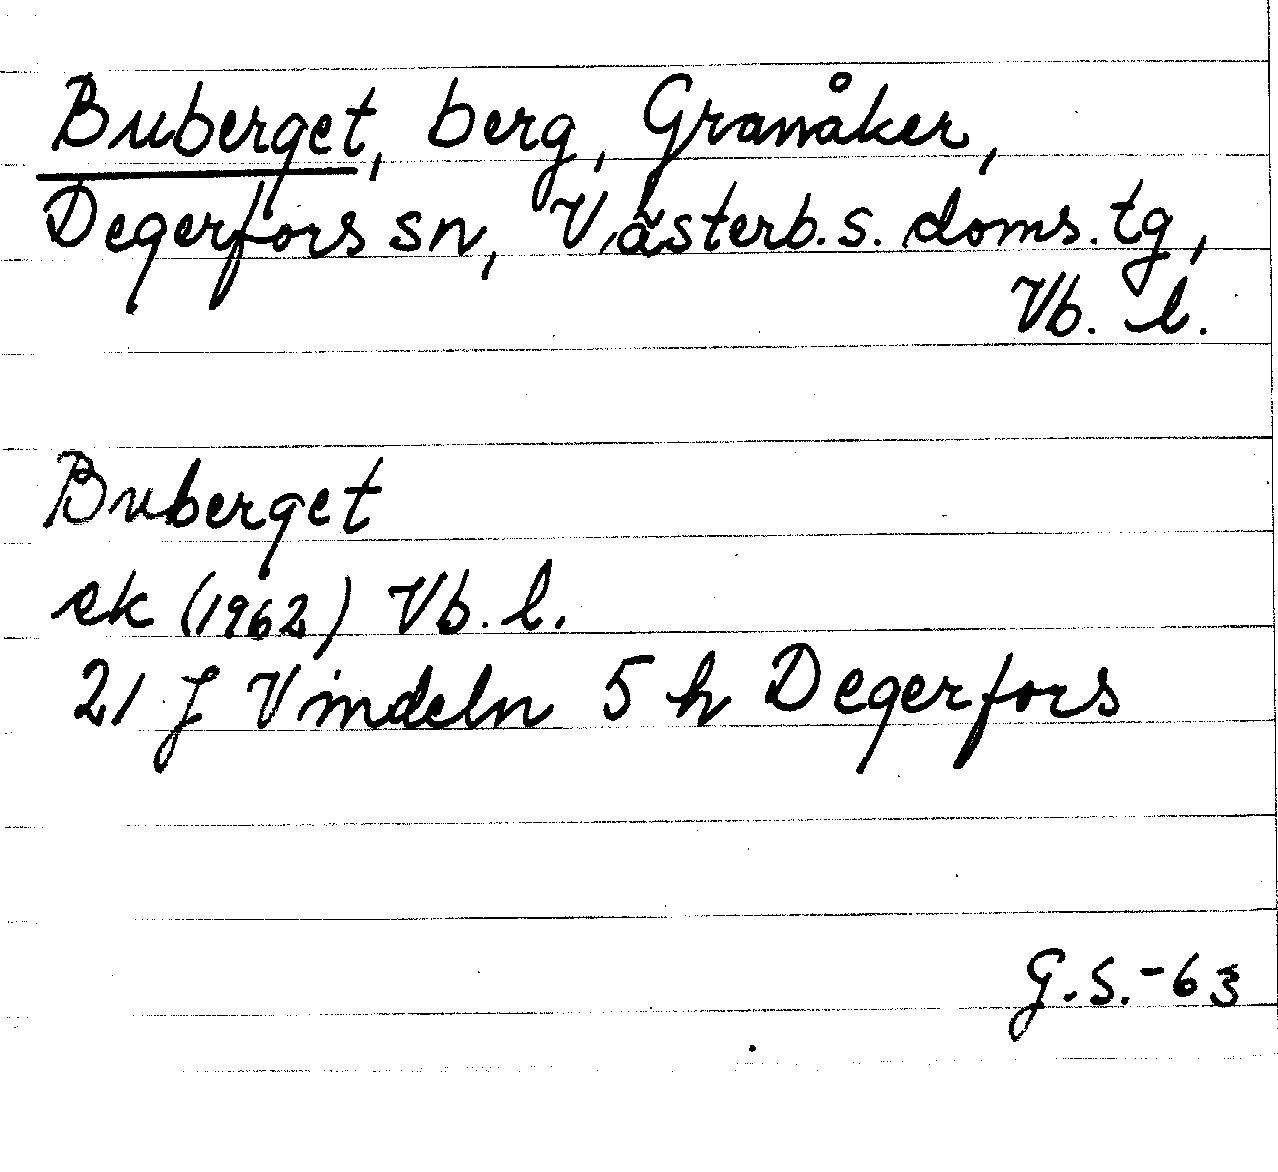 Buberget, berg, Granåker,
Degerfors sn, Västerb. s. doms. tg,
Vb. l.
Buberget
ek (1962) Vb. l.
21 J Vindeln 5 h Degerfors
G.S.-63